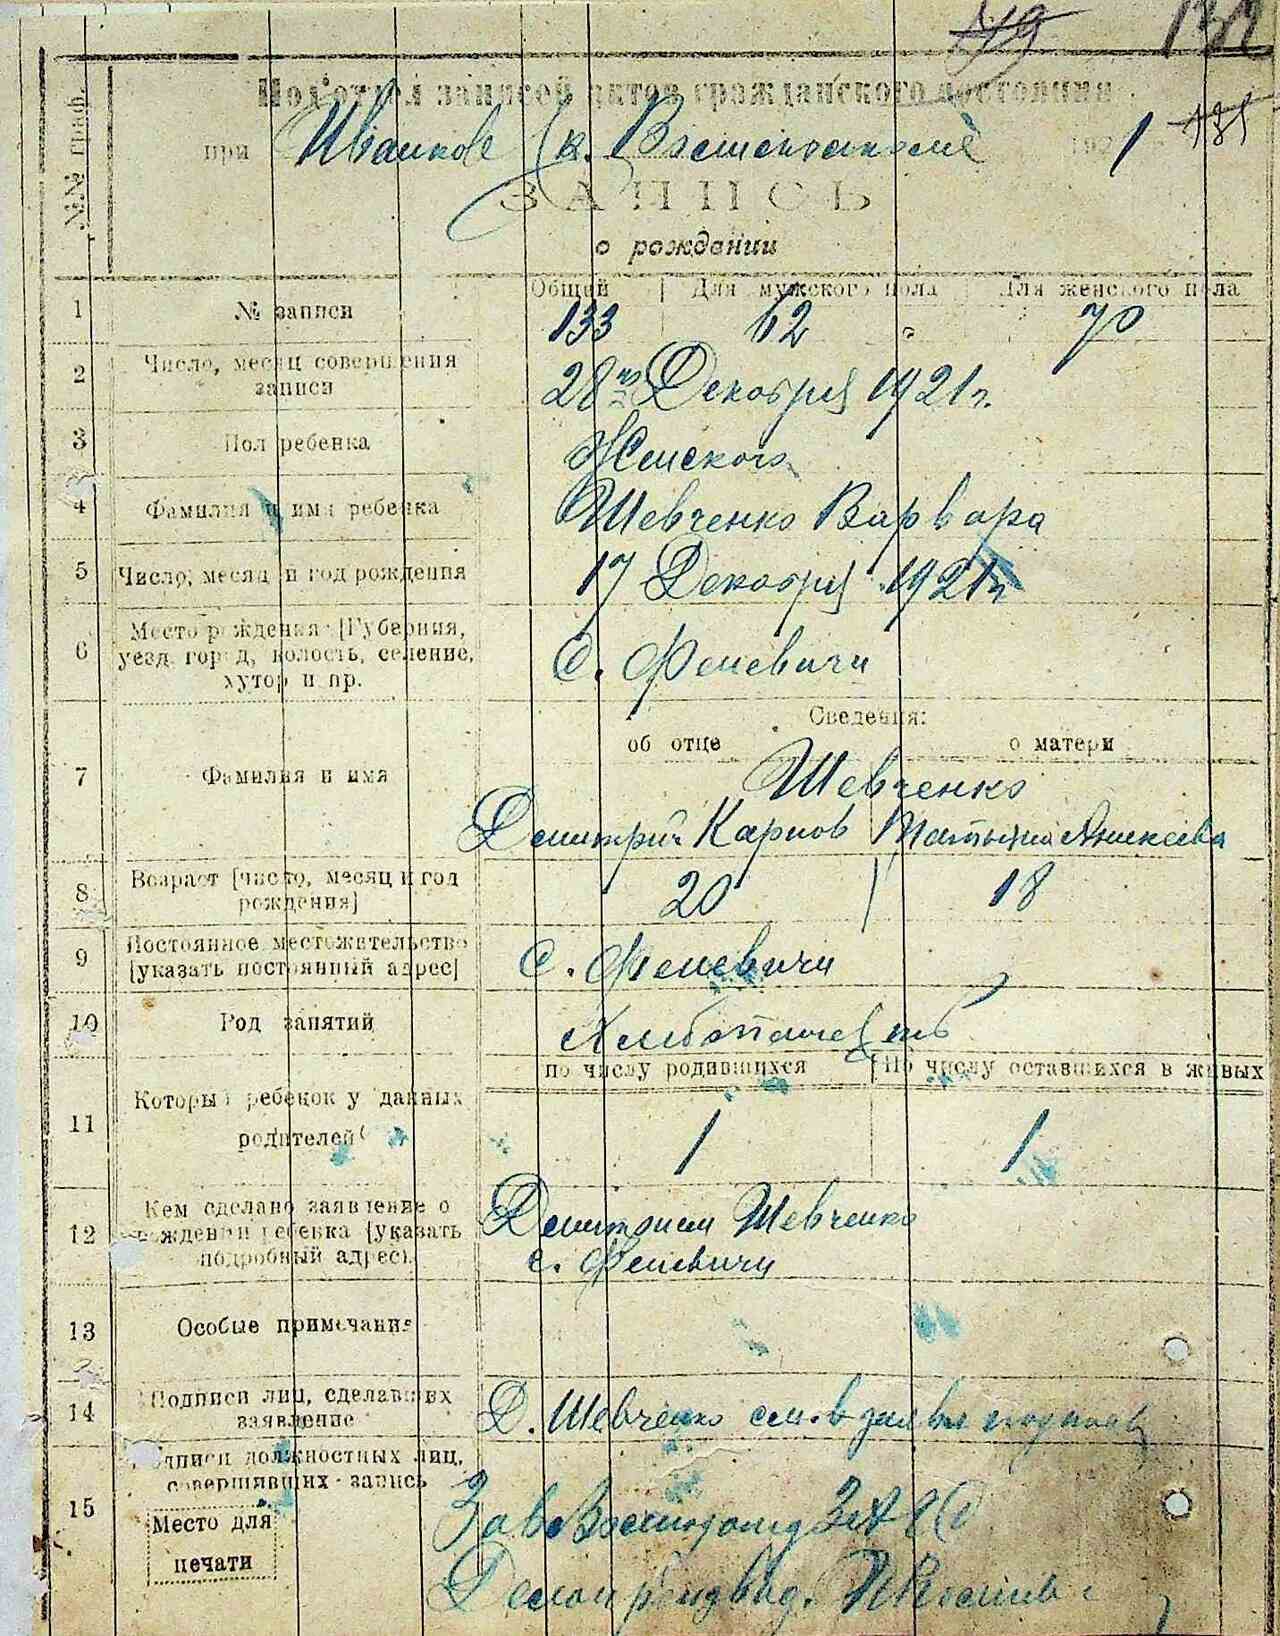 132
Подотдел записей актов гражданского состояния
при Иванков 1921 131
ЗАПИСЬ
о рождении
№№ граф.
Общий Для мужского пола Для женского пола
1 № записи 133 62 " 70
2 Число, месяц совершения записи 28го Декабря 1921 г.
3 Пол ребенка Женского
4 Фамилия и имя ребенка Шевченко Варвара
5 Число, месяц и год рождения 17 Декабря 1921 г
6 Место рождения [Губерния,
уезд, город, волость, селение,
хутор и пр. С. Феневичи
Сведения:
об отце о матери
7 Фамилия и имя Шевченко
Димитрий Карпов Татьяна
8 Возраст [число, месяц и год
рождения] 20 18
9 Постоянное местожительство
[указать постоянный адрес] С. Феневичи
10 Род занятий Хлебопашеств
по числу родившихся По числу оставшихся в живых
11 Который ребенок у данных
родителей 1 1
12 Кем сделано заявление о
рождении ребенка [указать
подробный адрес]. Димитрием Шевченко
с. Феневичи
13 Особые примечания
14 Подписи лиц, сделавших
заявление Д. Шевченко
15 Подписи должностных лиц,
совершивших запись
Место для
печати